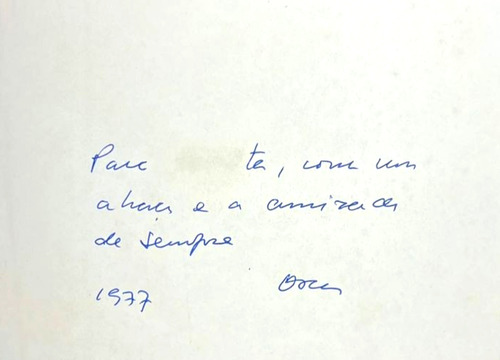 Para ta, com um
abraço e a amizade
de sempre
1977